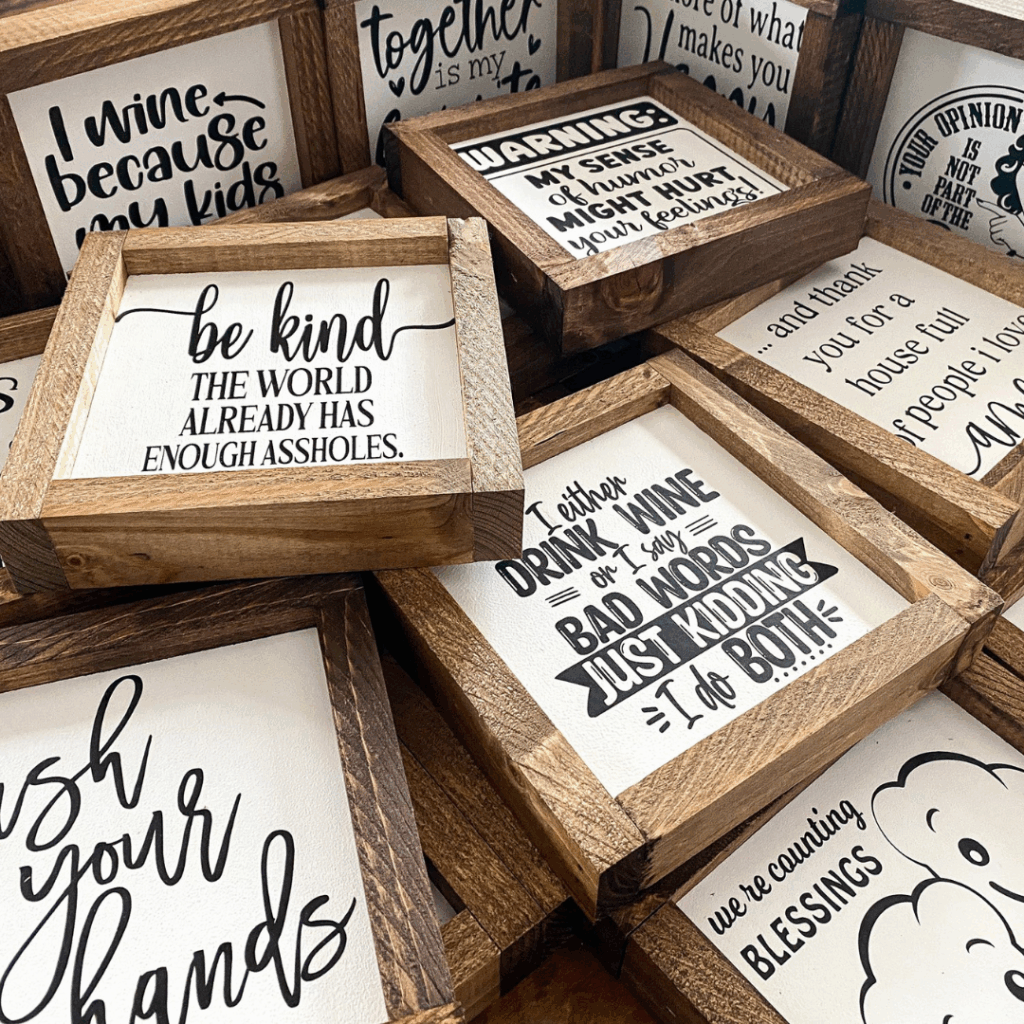 I wine
because
my kids
together
is my
of what
makes you
YOUR OPINION
IS
NOT
PART
OF THE
WARNING:
MY SENSE
of humor
MIGHT HURT
your feelings!
be kind
THE WORLD
ALREADY HAS
ENOUGH ASSHOLES.
... and thank
you for a
house full
of people i love
I either
DRINK WINE
or I say
BAD WORDS
JUST KIDDING
I do BOTH
your
hands
we're counting
BLESSINGS